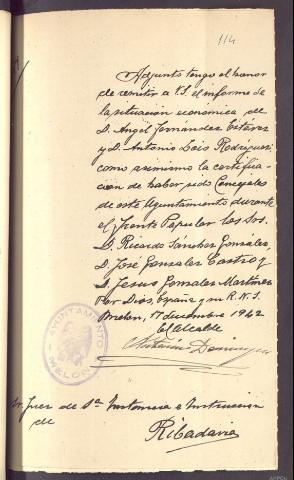 114
Adjunto tengo el honor
de remitir a V.S. el informe de
la situación económica de
D. Angel Fernández Estévez
y D. Antonio Leis Rodríguez;
como asimismo la certifica-
ción de haber sido Concejales
de este Ayuntamiento durante
el Frente Popular los Srs.
D. Ricardo Sanchez González,
D. José Gonzalez Castro y
D. Jesus Gonzalez Martinez
Por Dios, España y su R.N.S.
Melon, 17 diciembre 1942
El Alcalde
AYUNTAMIENTO
MELON
Sr. Juez de 1ª Instancia e Instrucción
de
Ribadavia